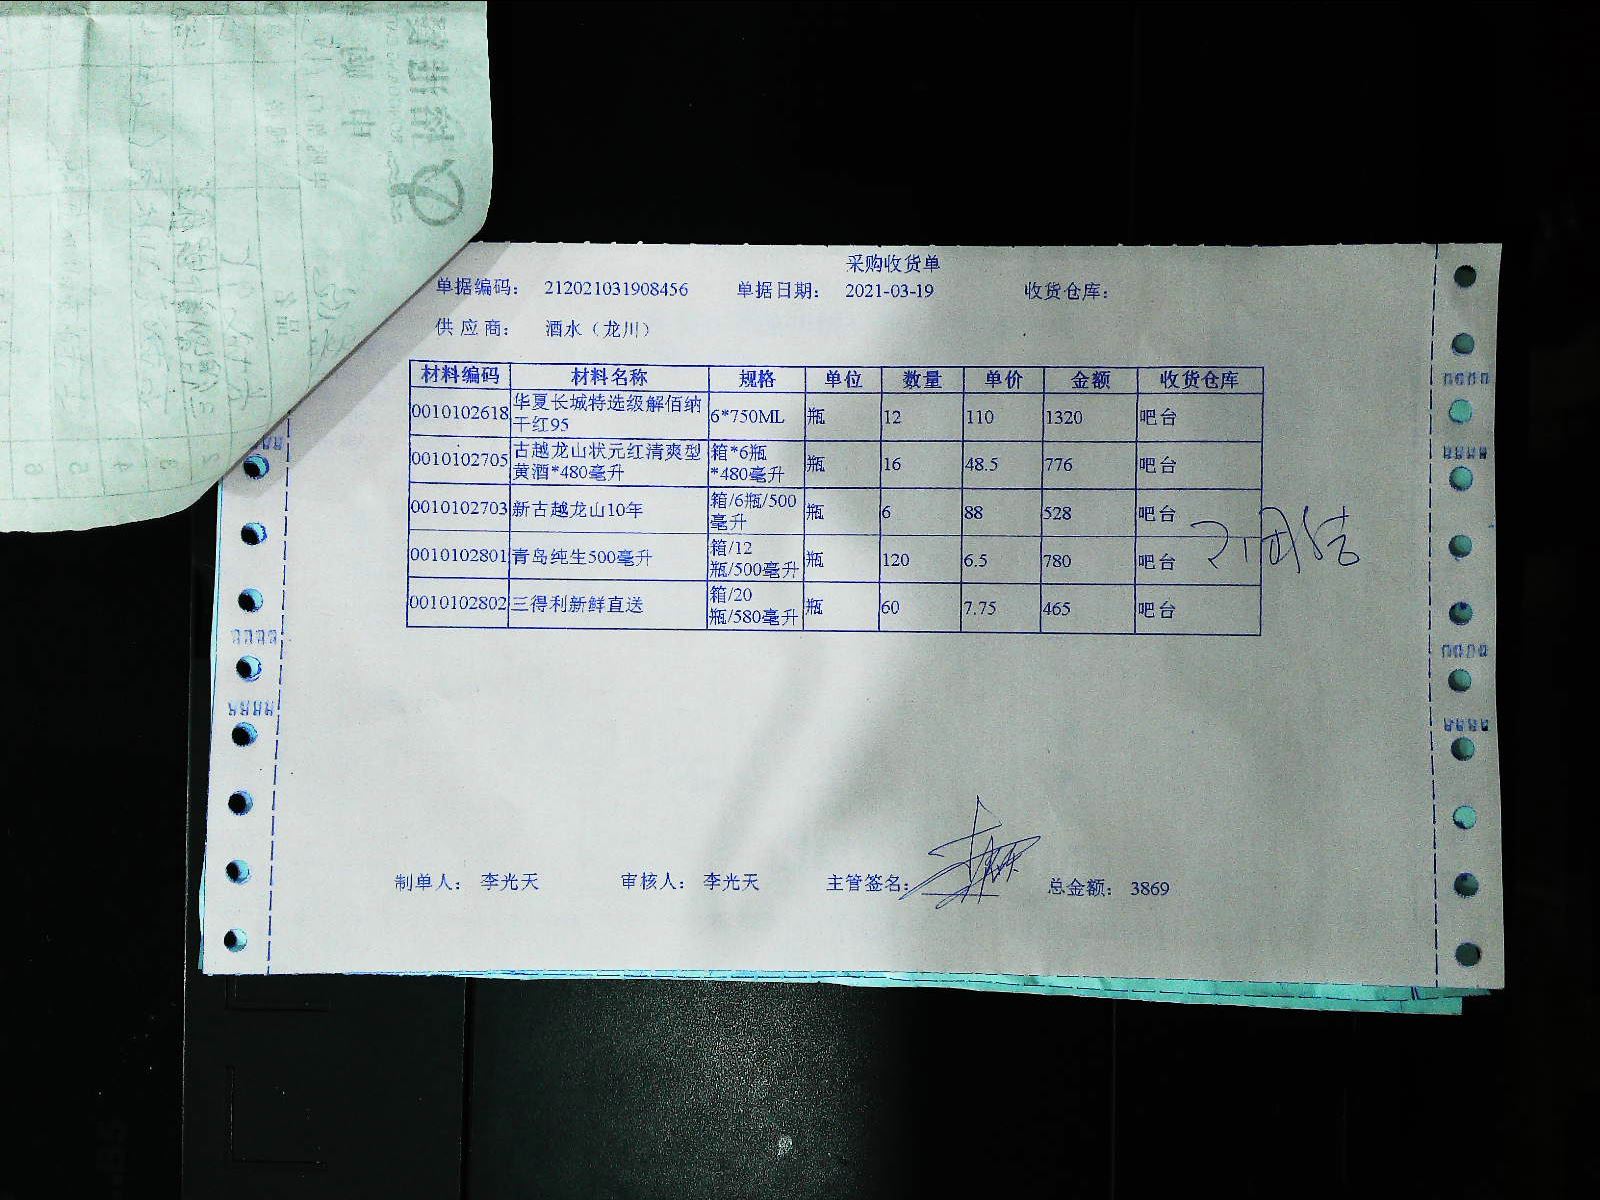 采购收货单
单据编码： 212021031908456 单据日期： 2021-03-19 收货仓库：
供 应 商： 酒水（龙川）
材料编码 材料名称 规格 单位 数量 单价 金额 收货仓库
0010102618 华夏长城特选级解佰纳干红95 6*750ML 瓶 12 110 1320 吧台
0010102705 古越龙山状元红清爽型黄酒*480毫升 箱*6瓶*480毫升 瓶 16 48.5 776 吧台
0010102703 新古越龙山10年 箱/6瓶/500毫升 瓶 6 88 528 吧台
0010102801 青岛纯生500毫升 箱/12瓶/500毫升 瓶 120 6.5 780 吧台
0010102802 三得利新鲜直送 箱/20瓶/580毫升 瓶 60 7.75 465 吧台
制单人： 李光天 审核人： 李光天 主管签名： 总金额： 3869